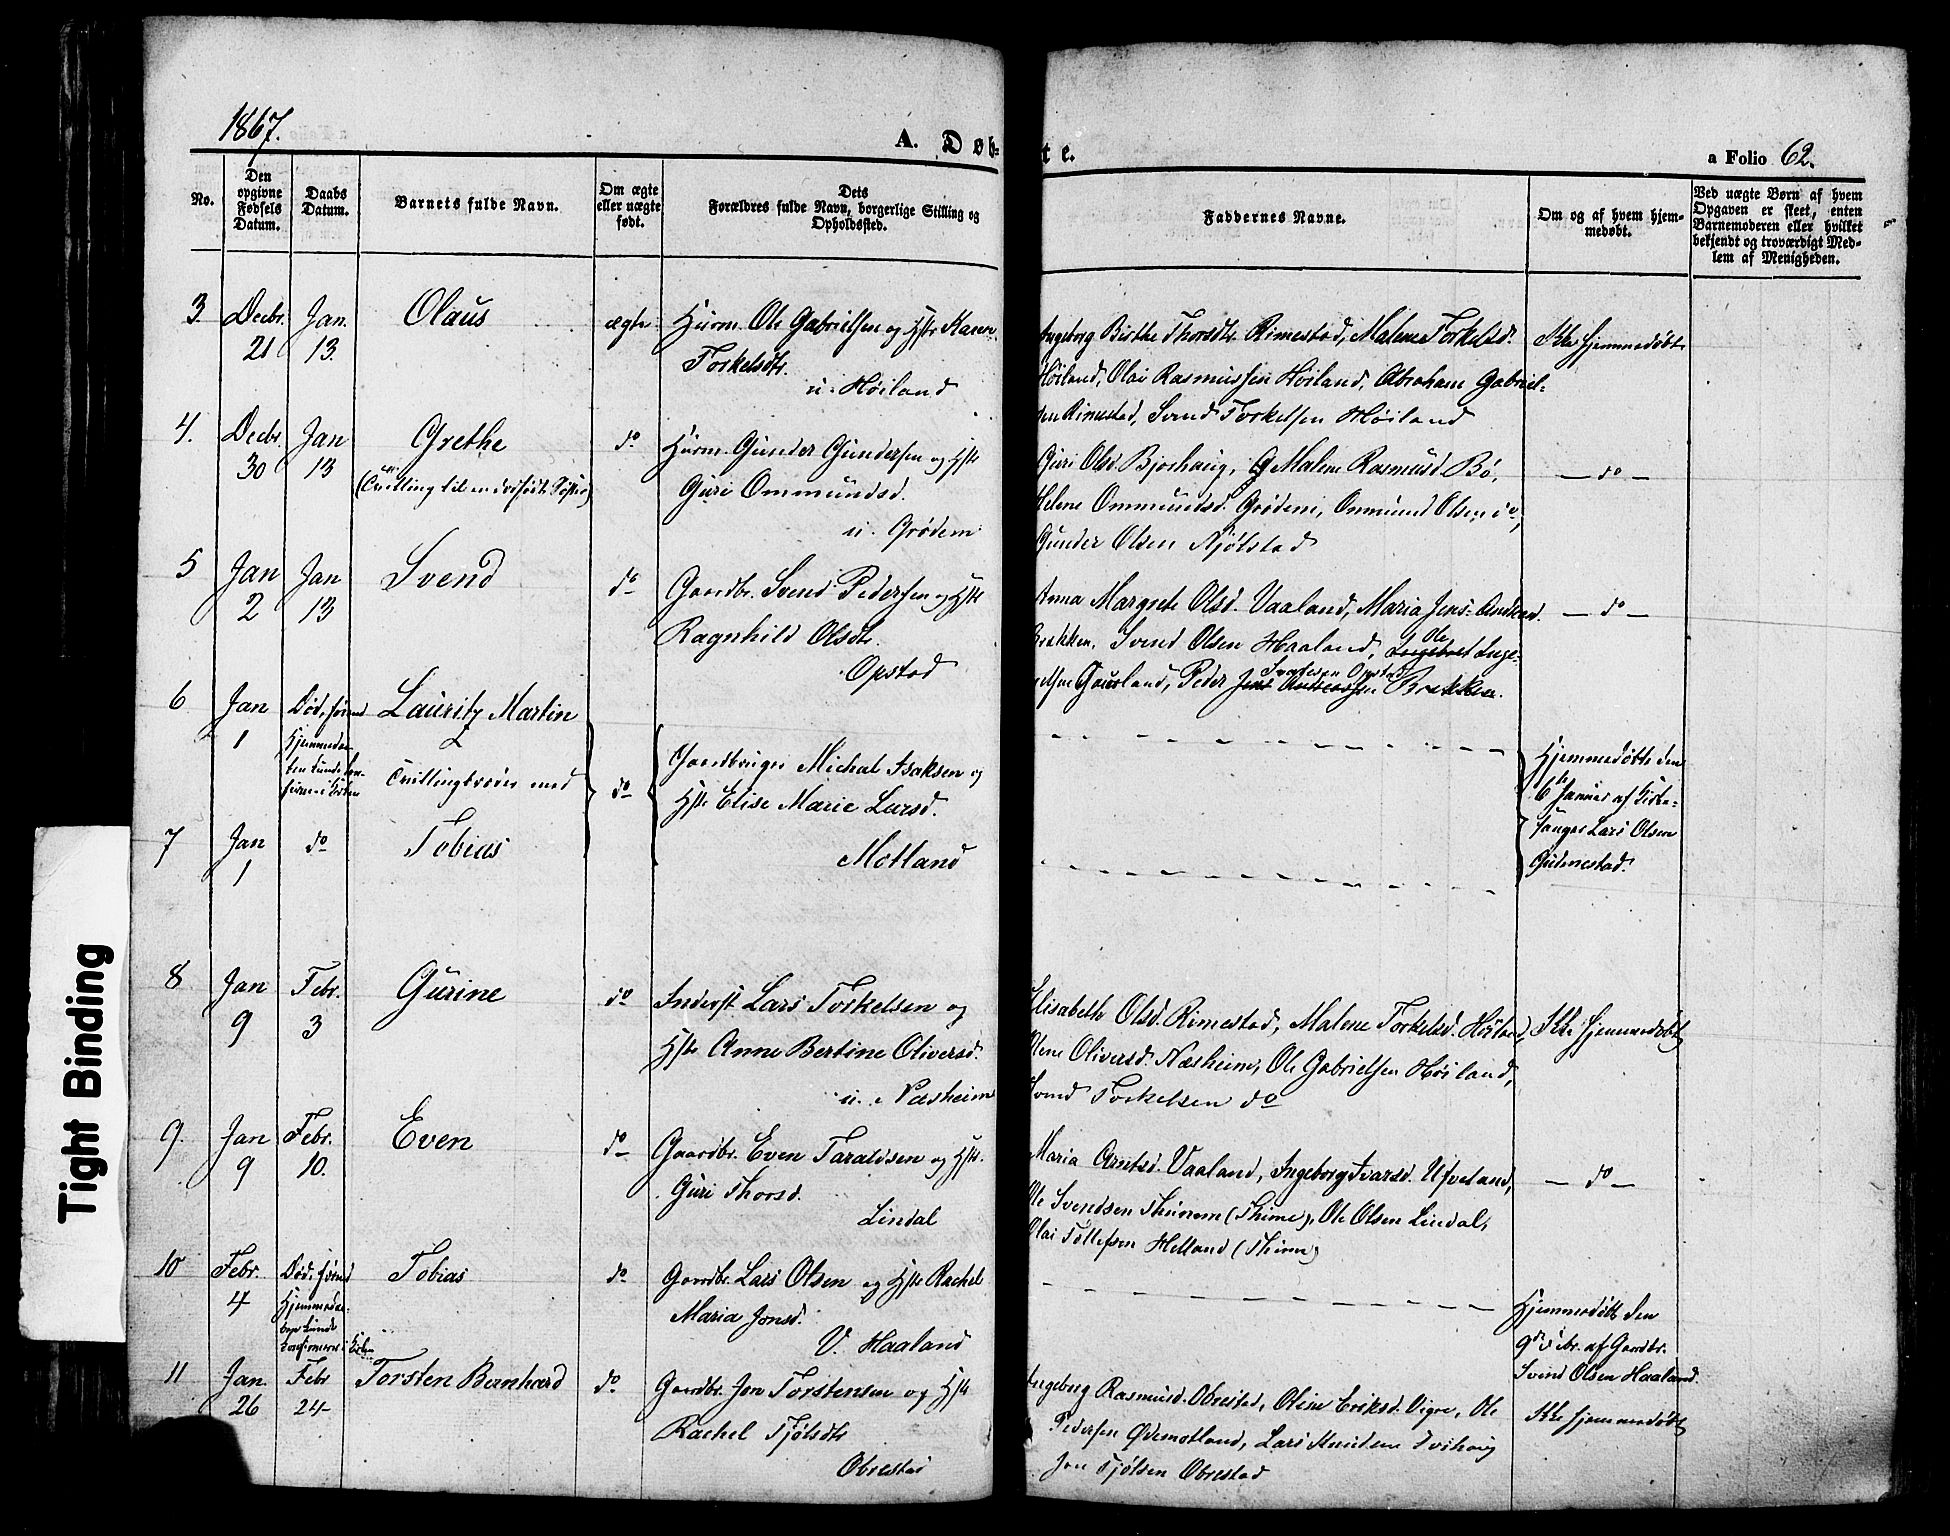 1867.
A. Døb-
te.
a Folio 62.
No.
Den opgivne Fødsels Datum.
Daabs Datum.
Barnets fulde Navn.
Om ægte eller uægte født.
Dets Forældres fulde Navn, borgerlige Stilling og Opholdssted.
Faddernes Navne.
Om og af hvem hjemmedøbt.
Ved uægte Børn af hvem Opgaven er skeet, enten Barnemoderen eller hvilket bekjendt og troværdigt Medlem af Menigheden.
3. Decbr. 21 Jan. 13. Olaus ægte Huusm. Ole Gabrielsen og Hstr Karen
Torkelsdtr.
u. Høiland
Ingeborg Birthe Thorsdtr. Rimestad, Malene Torkelsd.
Høiland, Olai Rasmussen Høiland, Abraham Gabriel-
sen Rimestad, Svend Torkelsen Høiland
Ikke hjemmedøbt
4. Decbr. 30 Jan 13 Grethe do Huusm. Gunder Gundersen og Hstr
(Tvilling til en dødfødt Søster)
Guri Ommundsd.
u. Grødem
Guri Olsd. Bjorhaug, G Malene Rasmusd Bø,
Helene Ommundsd. Grødem, Ommund Olsen do,
Gunder Olsen Njølstad
— do —
5 Jan 2 Jan 13 Svend do Gaardbr. Svend Pedersen og Hstr
Ragnhild Olsdtr.
Opstad
Anna Margrete Olsd. Vaaland, Maria Jens-Andread.
Brekken, Svend Olsen Haaland, Ole Inge-
Gausland, Peder Svendsen Opstad Brekken.
— do —
6 Jan 1 Død, førend
Hjemmedaa-
ben kunde con-
firmeres i Kirken
Lauritz Martin
Tvillingbroder med
do
Gaardbruger Michal Isaksen og
Hstr Elise Marie Larsd.
Motland
Hjemmedøbte den
6te Januar af Kirke-
sanger Lars Olsen
Gudmestad.
7 Jan 1 do Tobias
8 Jan 9 Febr. 3 Gurine do Inderst Lars Torkelsen og
Hstr Anne Bertine Oliversd.
u. Næsheim
Elisabeth Olsd. Rimestad, Malene Torkelsd. Høiland,
Olene Oliversd. Næsheim, Ole Gabrielsen Høiland,
Svend Torkelsen do
Ikke hjemmedøbt
9. Jan 9 Febr. 10. Even do Gaardbr. Even Taraldsen og Hstr.
Guri Thorsd.
Lindal
Maria Arntsd. Vaaland, Ingeborg Ivarsd. Ufveland,
Ole Svendsen Thunem (Thime), Ole Olsen Lindal,
Olai Tollefsen Helland (Thime)
— do —
10 Febr. 4 Død, førend
Hjemmedaa-
ben kunde
confirmeres i Kirken
Tobias do Gaardbr. Lars Olsen og Hstr Rachel
Maria Jonsd.
V. Haaland
Hjemmedøbt den
9de Febr. af Gaardbr.
Svend Olsen Haaland.
11 Jan. 26 Febr 24 Torsten Bernhard do Gaardbr. Jon Torstensen og Hstr
Rachel Tjølsdtr
Obrestad
Ingeborg Rasmusd. Obrestad, Oline Eriksd. Vigre, Ole
Pedersen Ødemotland, Lars Knudsen Tvihoug
Jon Tjølsen Obrestad
Ikke hjemmedøbt
Tight Binding